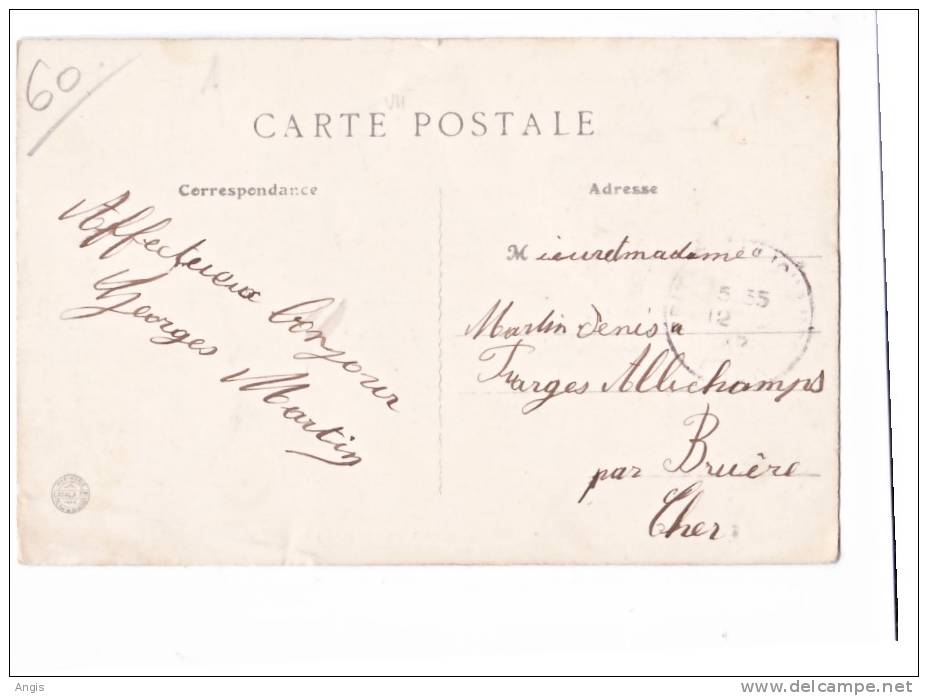 60
CARTE POSTALE
Correspondance
Adresse
Affectueux bonjour
Georges Martin
Mieuretmadame
Martin Denis a
Farges Allichamps
par Bruère
Cher
5 35
12
Angis
www.delcampe.net